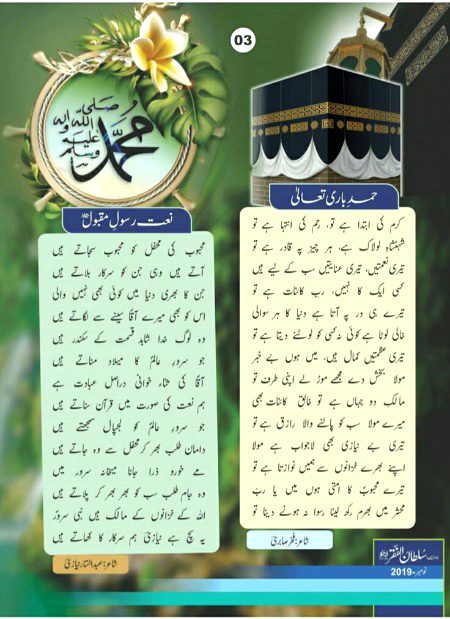 03
محمد
صلی اللہ علیہ وآلہ وسلم
حمد باری تعالیٰ
کرم کی ابتدا ہے تو، رحم کی انتہا ہے تو
شہنشاہِ لولاک ہے، ہر چیز پہ قادر ہے تو
تیری نعمتیں، تیری عنایتیں سب کے لیے ہیں
کسی ایک کا نہیں، رب کائنات ہے تو
تیرے ہی در پہ آتا ہے دنیا کا ہر سوالی
خالی لوٹا ہے کوئی نہ کسی کو لوٹنے دیتا ہے تو
تیری عظمتیں کمال ہیں، میں ہوں بے خبر
مولا بخش دے مجھے موڑ لے اپنی طرف تو
مالک دو جہاں ہے تو خالق کائنات بھی
میرے مولا سب کو پالنے والا رازق ہے تو
تیری بے نیازی بھی لاجواب ہے مولا
اپنے بھرے خزانوں سے ہمیں نوازتا ہے تو
تیرے محبوبؐ کا امتی ہوں میں یا رب
محشر میں بھرم رکھ لینا رسوا نہ ہونے دینا تو
شاعر: فخر صابری
نعت رسول مقبول ﷺ
محبوب کی محفل کو محبوب سجاتے ہیں
آتے ہیں وہی جن کو سرکار بلاتے ہیں
جن کا بھری دنیا میں کوئی بھی نہیں والی
اس کو بھی میرے آقا سینے سے لگاتے ہیں
وہ لوگ خدا شاہد قسمت کے سکندر ہیں
جو سرورِ عالمؐ کا میلاد مناتے ہیں
آقا کی ثناء خوانی دراصل عبادت ہے
ہم نعت کی صورت میں قرآن سناتے ہیں
جو سرورِ عالمؐ کو لجپال سمجھتے ہیں
دامان طلب بھر کر محفل سے وہ جاتے ہیں
مے خورو ذرا جانا میخانہ سرور میں
وہ جام طلب سب کو بھر بھر کر پلاتے ہیں
اللہ کے خزانوں کے مالک ہیں نبی سرورؐ
یہ سچ ہے نیازیؔ ہم سرکار کا کھاتے ہیں
شاعر: عبدالستار نیازیؔ
سلطان الفقر لاہور
نومبر-2019